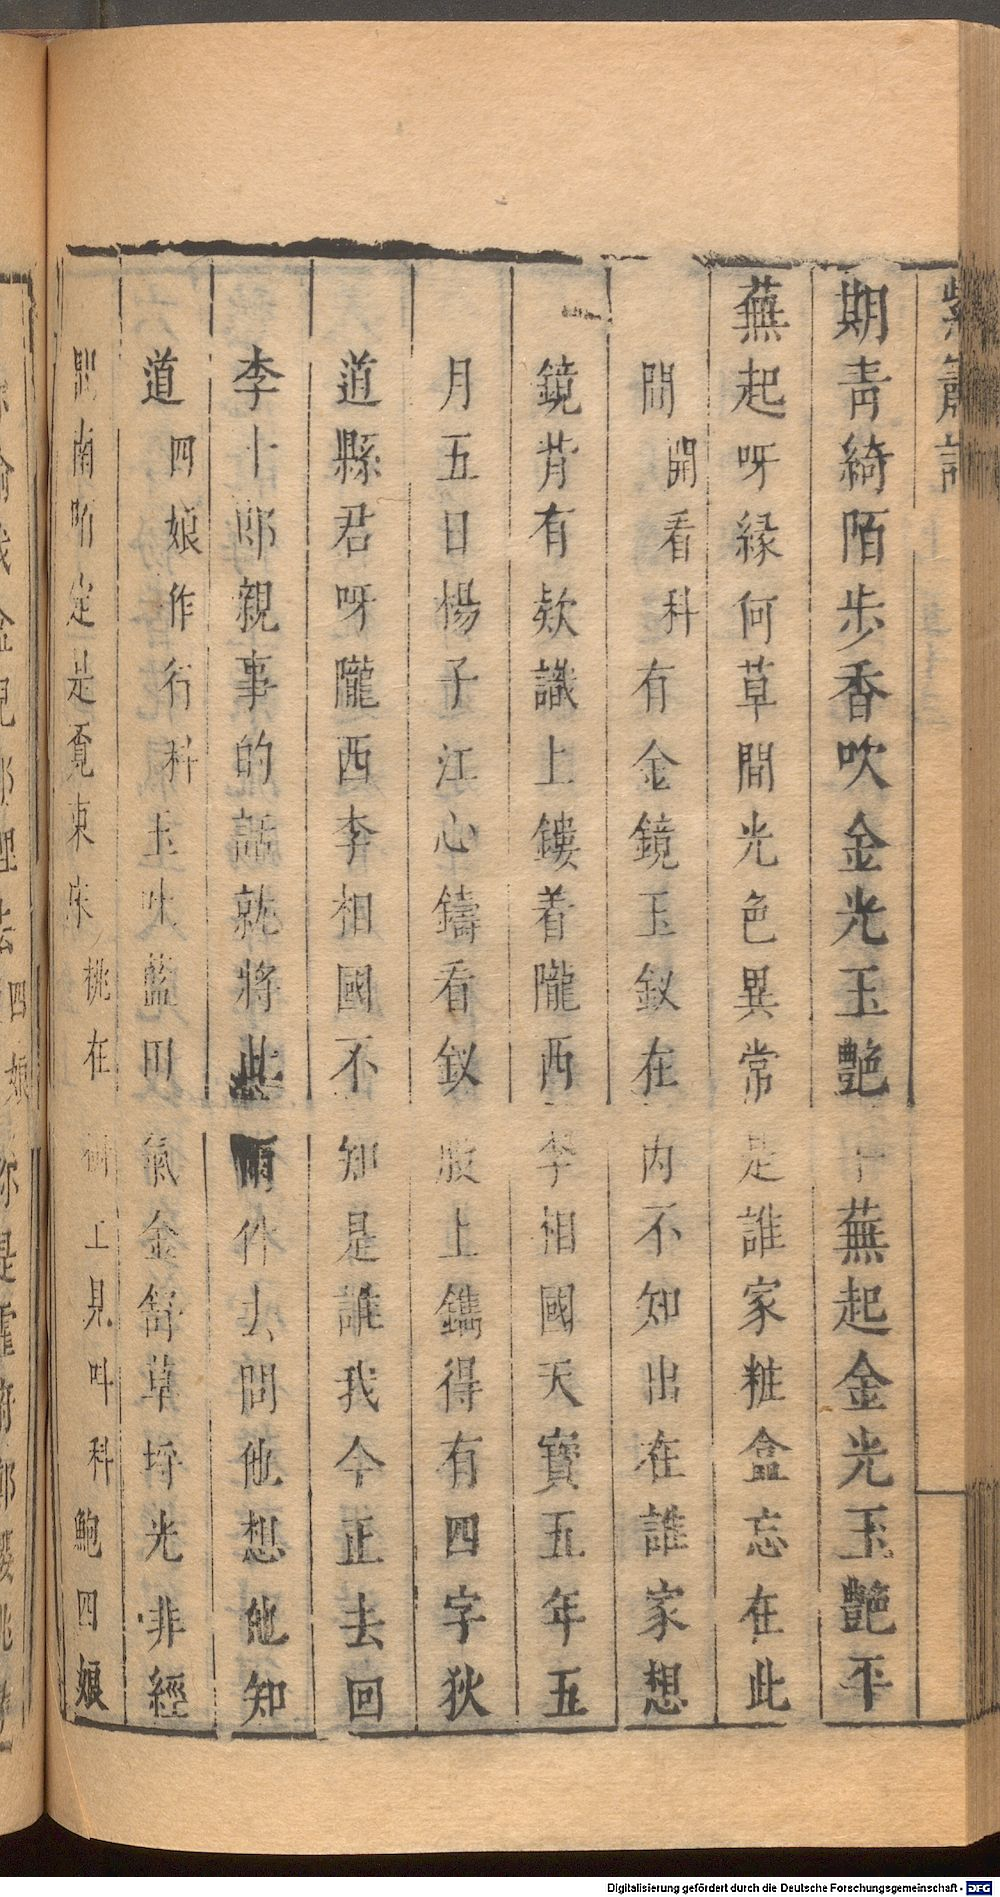 紫簫記
期青綺陌步香吹金光玉艷平蕪起金光玉艷平
蕪起呀緣何草間光色異常是誰家粧盒忘在此
間開看科有金鏡玉釵在內不知出在誰家想
鏡背有欵識上鏤着隴西李相國天寶五年五
月五日楊子江心鑄看釵股上鐫得有四字狄
道縣君呀隴西李相國不知是誰我今正去回
李十郎親事的話就將此兩件去問他想他知
道四娘作行科玉吐藍田氣金舒草坪光非經
南陌定是覓東床桃在 上見叫科鮑四娘
Digitalisierung gefördert durch die Deutsche Forschungsgemeinschaft - DFG